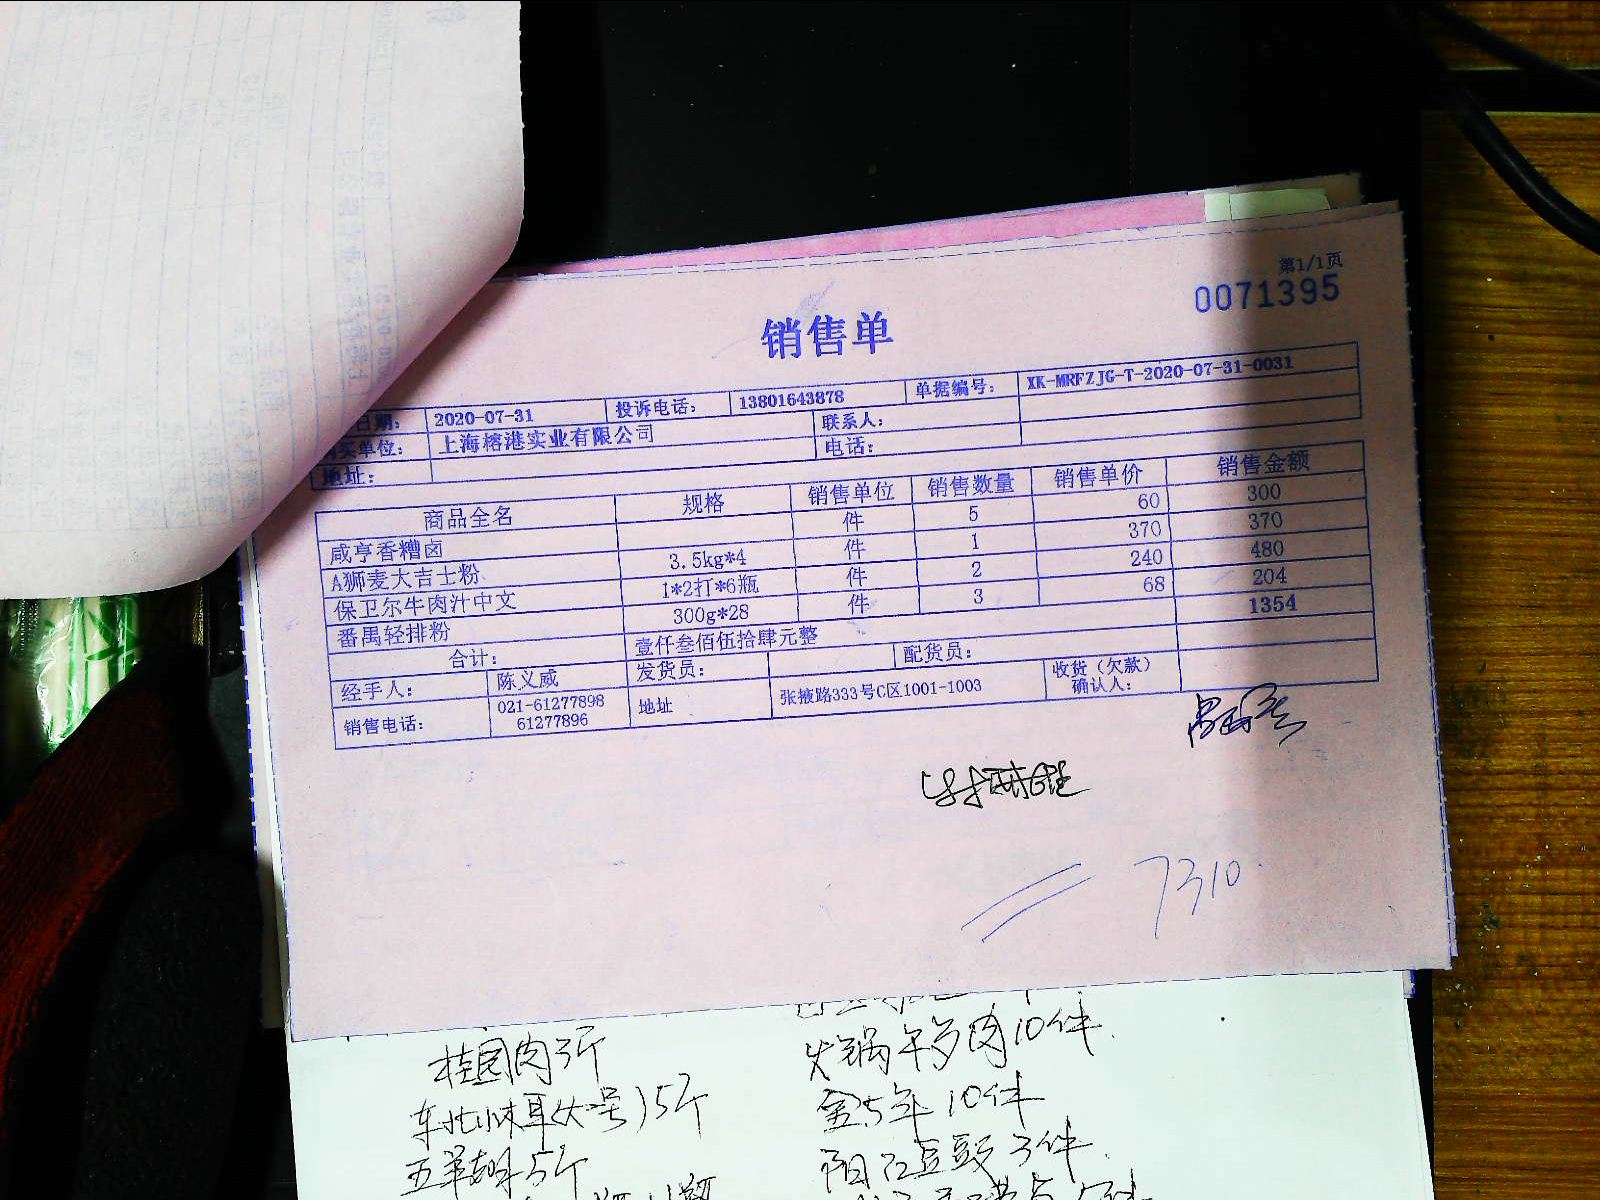 第1/1页
0071395
销售单
日期： 2020-07-31 投诉电话： 13801643878 单据编号： XK-MRFZJG-T-2020-07-31-0031
买单位： 上海榕港实业有限公司 联系人：
地址： 电话：
商品全名 规格 销售单位 销售数量 销售单价 销售金额
咸亨香糟卤 件 5 60 300
A狮麦大吉士粉 3.5kg*4 件 1 370 370
保卫尔牛肉汁中文 1*2打*6瓶 件 2 240 480
番禺轻排粉 300g*28 件 3 68 204
合计： 壹仟叁佰伍拾肆元整 1354
经手人： 陈义威 发货员： 配货员： 收货（欠款）确认人：
销售电话： 021-61277898 61277896 地址 张掖路333号C区1001-1003
7310
桂园肉3斤 火锅年多肉10件
东北小木耳(大号)5斤 金5年10件
阳江豆豉3件